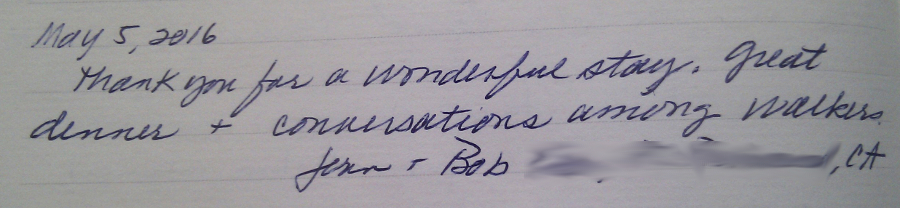 May 5, 2016
Thank you for a wonderful stay. Great
denner + conversations among walkers.
Jenn + Bob , CA